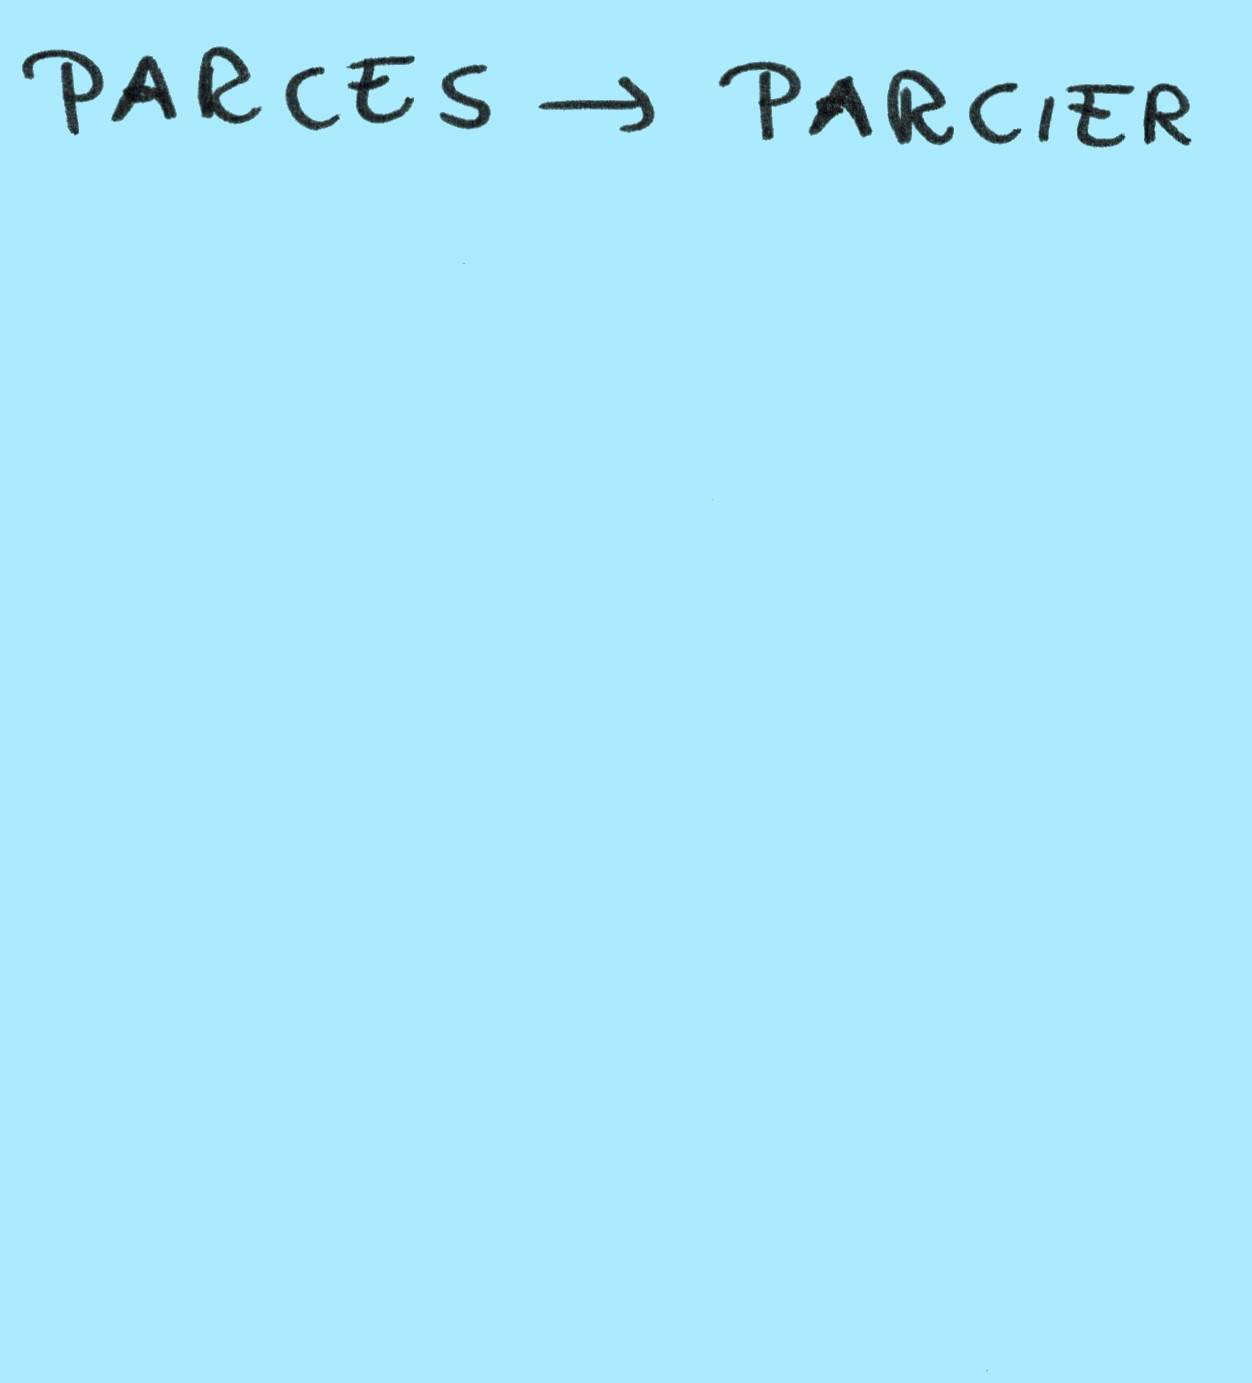 PARCES → PARCIER